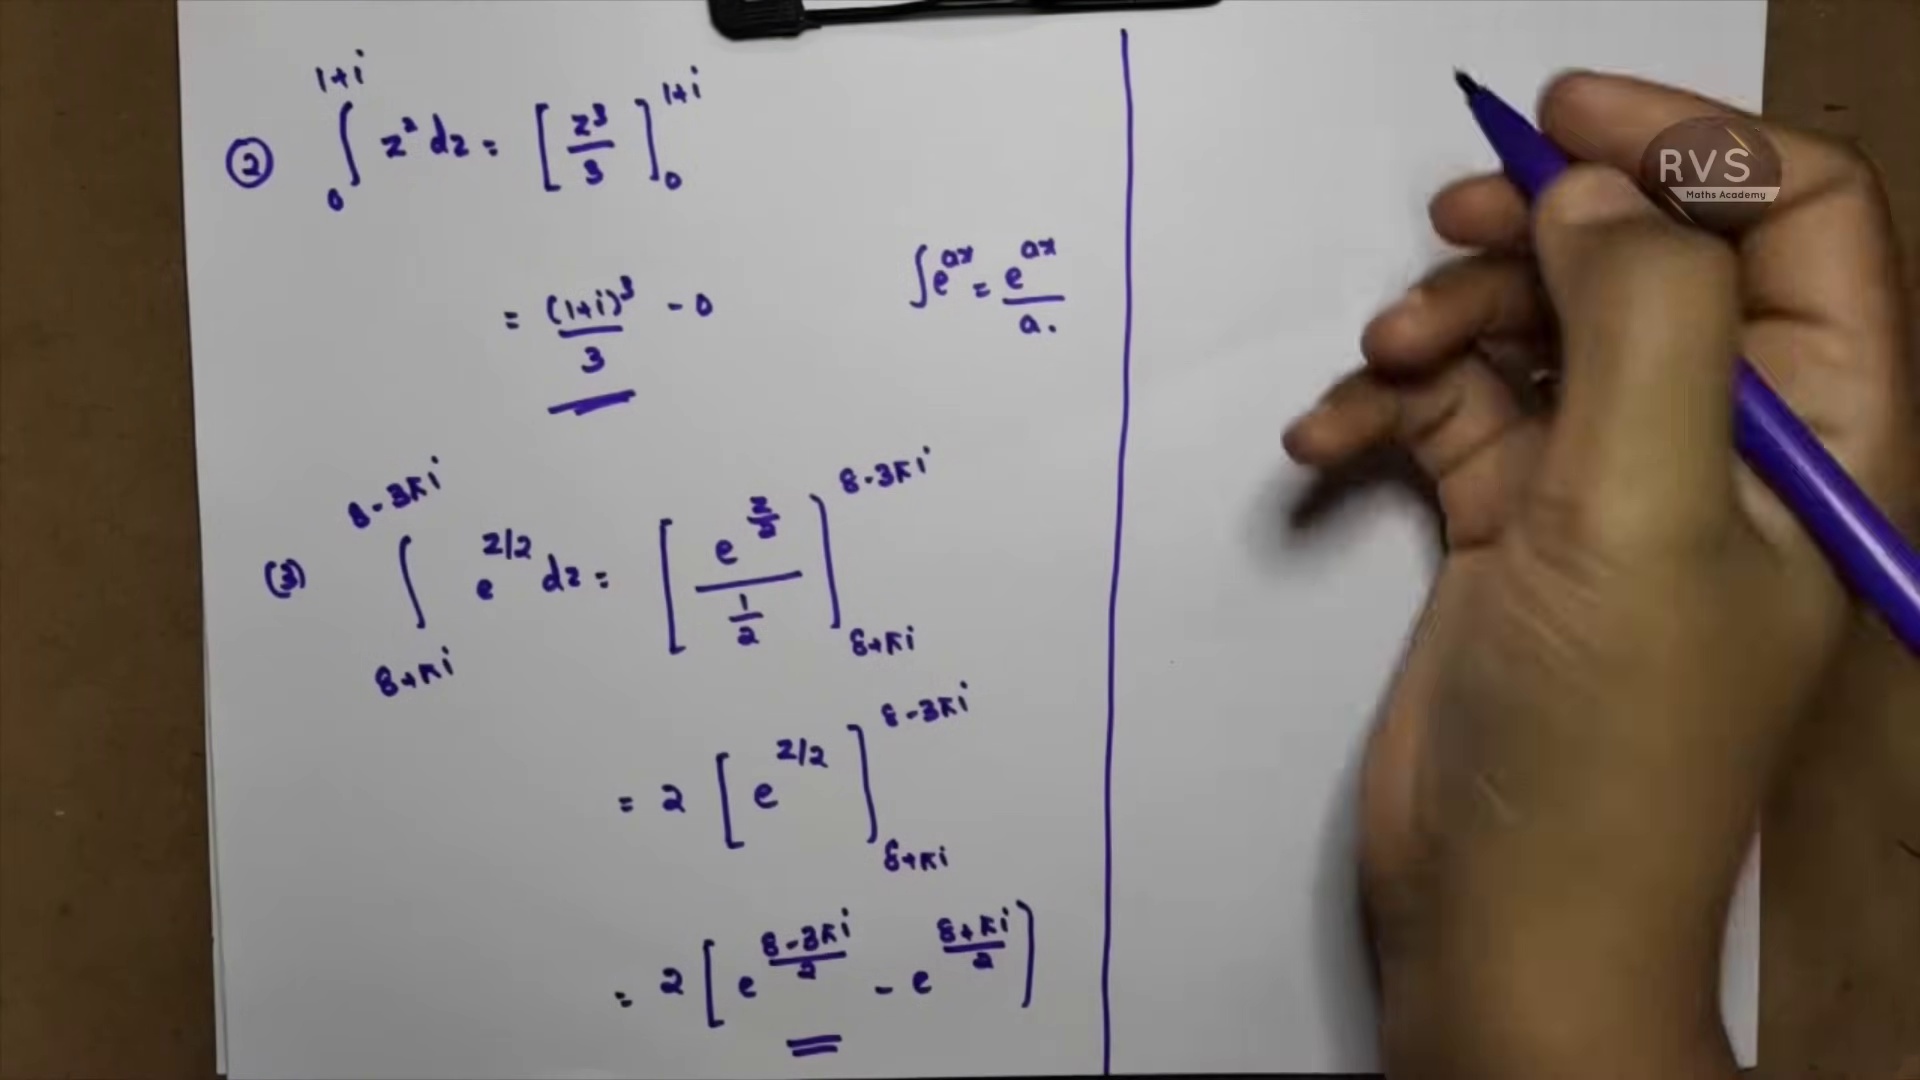 ② ∫₀¹⁺ⁱ z² dz = [z³/3]₀¹⁺ⁱ
= (1+i)³/3 - 0
∫e^ax = e^ax/a.
(3) ∫_{8+πi}^{8-3πi} e^{z/2} dz = [e^{z/2}/(1/2)]_{8+πi}^{8-3πi}
= 2 [e^{z/2}]_{8+πi}^{8-3πi}
= 2 [e^{(8-3πi)/2} - e^{(8+πi)/2}]
RVS
Maths Academy